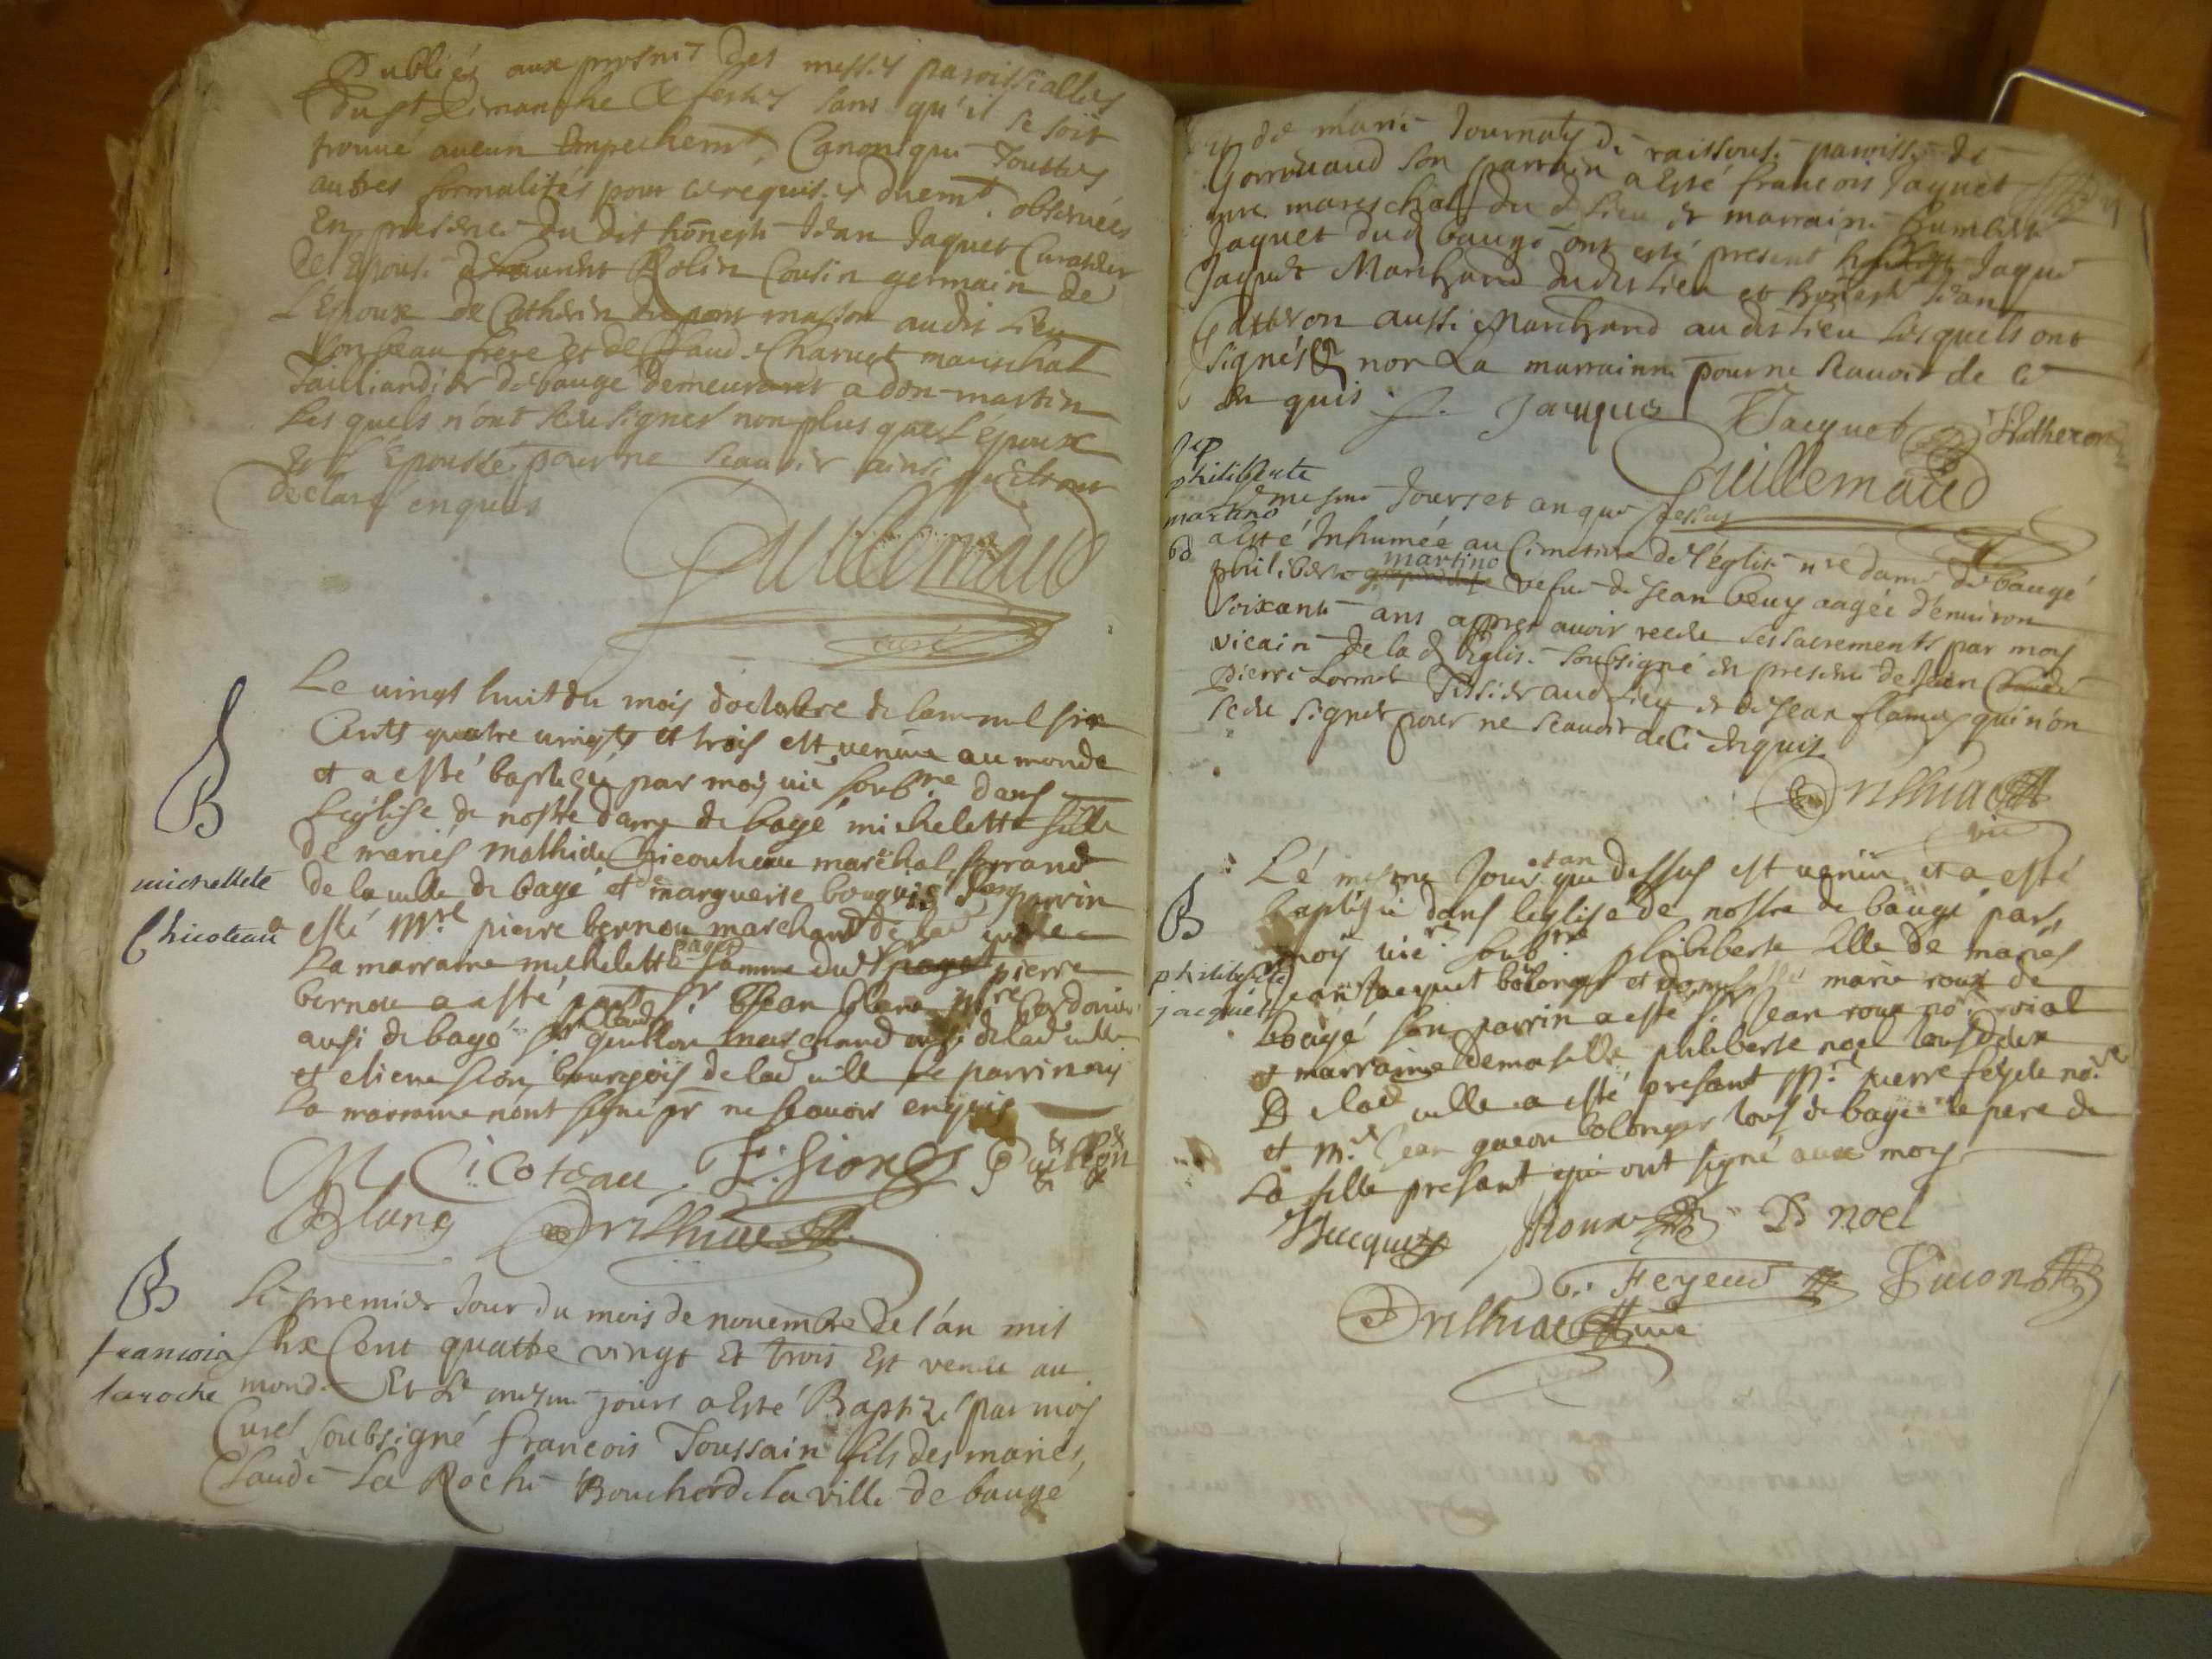 Publiés aux prosnes des messes paroissialles
Dimanche & festes sans qu'il se soit
trouué aucun Empechemt Canonique Touttes
autres formalités pour ce requises duemt obseruées
En presence du dit honneste Jean Jaquet Curateur
de L'Epouse de Laurent Rolin Cousin germain de
L'Epoux de Catherin Dupont masson audit Lieu
son beau frere et de Claude Charuet mareschal
Tailliandier de bauge demeurant a don martin
Les quels n'ont sceu signer non plus que L'époux
Et L'Epousse pour ne scauoir ainsi qu'Ils ont
declaré enquis
Guillemaud
curé
B
michellete
Chicoteau
Le vingt huit du mois d'octobre de lan mil six
Cents quatre uingts et trois est venue au monde
et a esté baptisée par moy vic soubne dans
Leglise de nostre dame de bagé michelette fille
de mariés mathieu Chicouteau maréchal ferrand
de la uille de bagé et de marguerite bouquis son parrin
esté Mre pierre bernou marchand de lad uille
La marraine michelette pagot famme dud pierre
bernou a esté Sr Jean blanc Mre Cordonier
ausi de bagé Sr claude guillon marchand ausi de lad uille
et etiene sion bourgois de lad uille Le parrin ny
La marraine nont signé pr ne scauoir enquis
M Cicoteau E. Sion Guillon
Blanc Drilhiac
B
francois
laroche
Le premier Jour du mois de nouembre de l'an mil
six Cent quattre vingt Et trois Est venu au
monde Et Le mesme jours a Esté Baptizé par moy
Curé soubsigné francois Toussain fils des mariés
Claude La Roche Boucher de la ville de baugé
et de marie Tournaty de raissouse paroisse de
Gorreuaud son parrain a Esté francois Jaquet
mre mareschal du d Lieu et marraine humberte
Jaquet dud baugé ont esté present Jaque
Jaquet Marchand dudit Lieu et honeste Jean
Catheron aussi Marchand audit Lieu Lesquels ont
signés non La marrainne pour ne scauoir de ce
en quis
J. Jacques Jacquet J Catheron
Guillemaud
Sep
philiberte
martino
Le mesme Jours et an que dessus
a esté Inhumée au Cimetiere de l'église nre dame de baugé
philiberte martino vefue de Jean beuy aagée d'enuiron
soixante ans apres auoir receu Les sacrements par moy
vicair de la d Eglise soubsigné en presence de Jean Claude
pierre Lormet Tissier aud Lieu et de Jean flamy qui n'on
sceu signer pour ne scauoir de Ce enquis
Drilhiac
vic
B
philiberte
jacquet
Lé mesme Jour et an que dessus est venüe et a esté
baptisée dans leglise de nostre de baugé par
moy vicre soubne philiberte fille de mariés
Jean Jacquet bolonger et domoiselle marie roux de
bagé son parrin a esté Sr Jean roux nore roial
et marraine demoiselle philiberte noel tous deux
De lad uille a esté present Mre pierre feyeud nore
et Mre Jean gueon bolonger tous de bagé Le pere de
La fille present qui ont signé auec moy
Jacquet Roux P noel
P. Feyeud Guion
Drilhiac vic